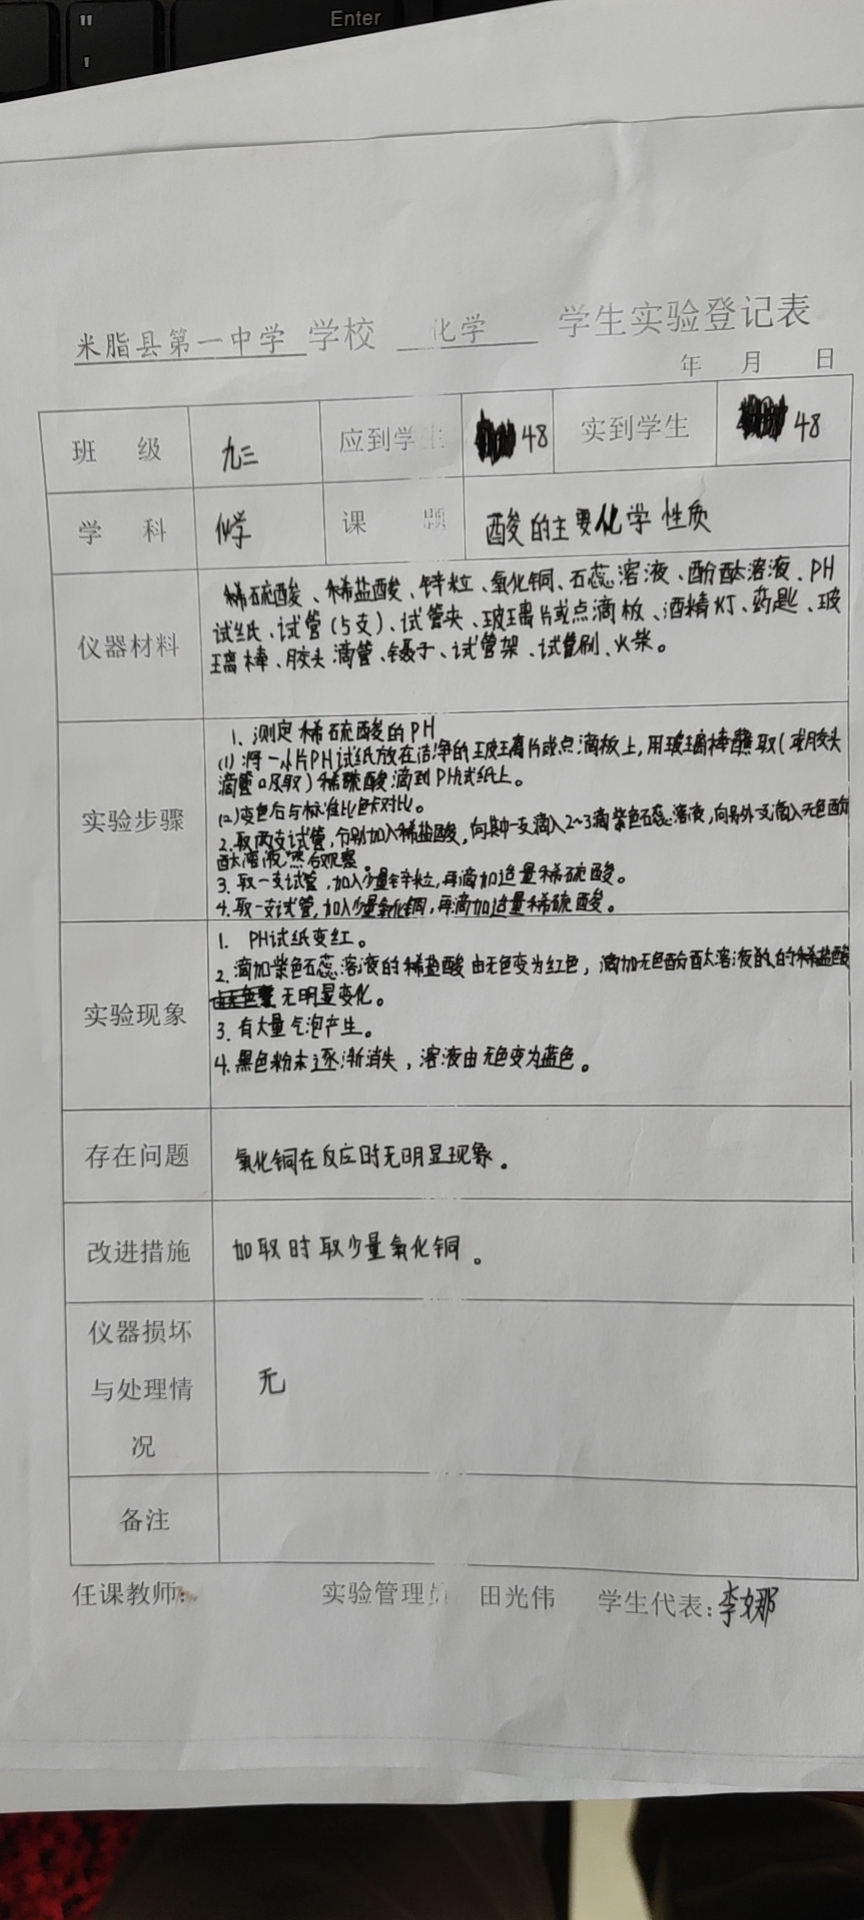 "
'
Enter
米脂县第一中学 学校 化学 学生实验登记表
年 月 日
班 级 九三 应到学生 48 实到学生 48
学 科 化学 课 题 酸的主要化学性质
仪器材料
稀硫酸、稀盐酸、锌粒、氧化铜、石蕊溶液、酚酞溶液、PH
试纸、试管(5支)、试管夹、玻璃片或点滴板、酒精灯、药匙、玻
璃棒、胶头滴管、镊子、试管架、试管刷、火柴。
实验步骤
1、测定稀硫酸的PH
(1)将一小片PH试纸放在洁净的玻璃片或点滴板上,用玻璃棒蘸取(或胶头
滴管吸取)稀硫酸滴到PH试纸上。
(2)变色后与标准比色卡对比。
2.取两支试管,分别加入稀盐酸,向其中一支滴入2~3滴紫色石蕊溶液,向另外一支滴入无色酚
酞溶液,然后观察。
3.取一支试管,加入少量锌粒,再滴加适量稀硫酸。
4.取一支试管,加入少量氧化铜,再滴加适量稀硫酸。
实验现象
1. PH试纸变红。
2.滴加紫色石蕊溶液的稀盐酸由无色变为红色,滴加无色酚酞溶液的稀盐酸
无明显变化。
3.有大量气泡产生。
4.黑色粉末逐渐消失,溶液由无色变为蓝色。
存在问题 氧化铜在反应时无明显现象。
改进措施 加取时取少量氧化铜。
仪器损坏
与处理情
况
无
备注
任课教师: 实验管理员 田光伟 学生代表:李娜